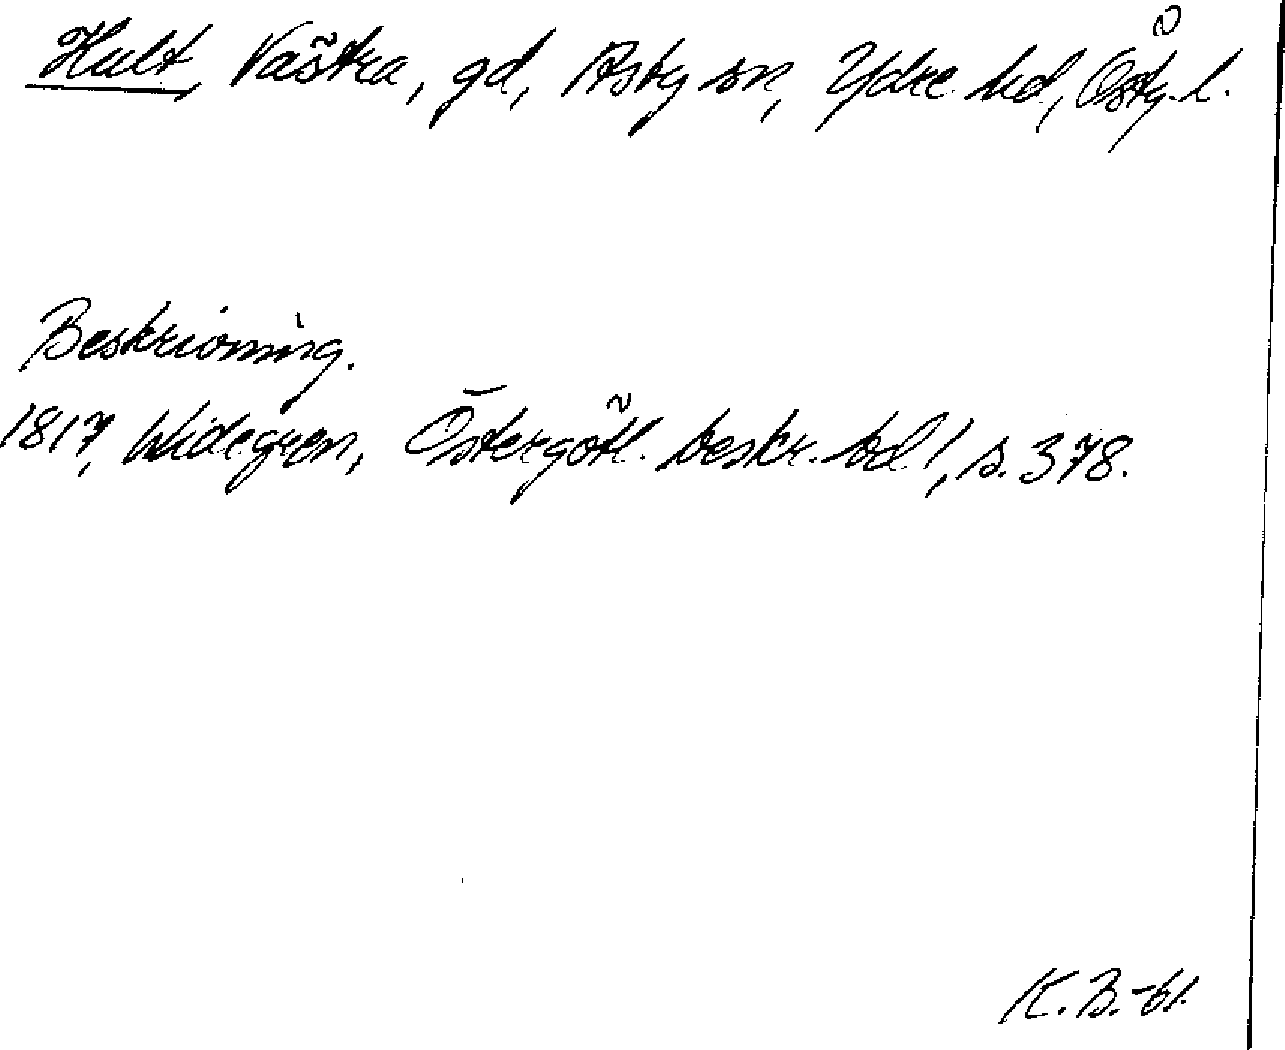 Hult, Västra, gd, Asby sn, Ydre hd, Östg. l.
Beskrivning.
1817, Widegren, Östergötl. beskr. bd 1, s. 378.
K. B. -61.